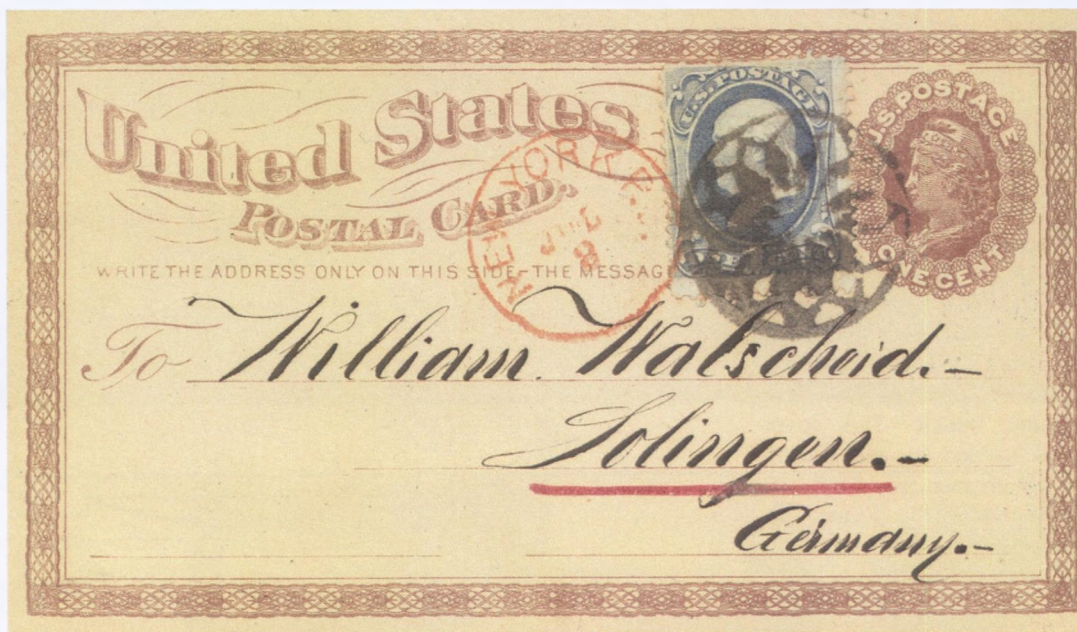 United States
POSTAL CARD.
WRITE THE ADDRESS ONLY ON THIS SIDE-THE MESSAG
NEW YORK
JUL
8
U.S. POSTAGE
U.S. POSTAGE
ONE CENT
To William Walscheid.-
Solingen.-
Germany.-